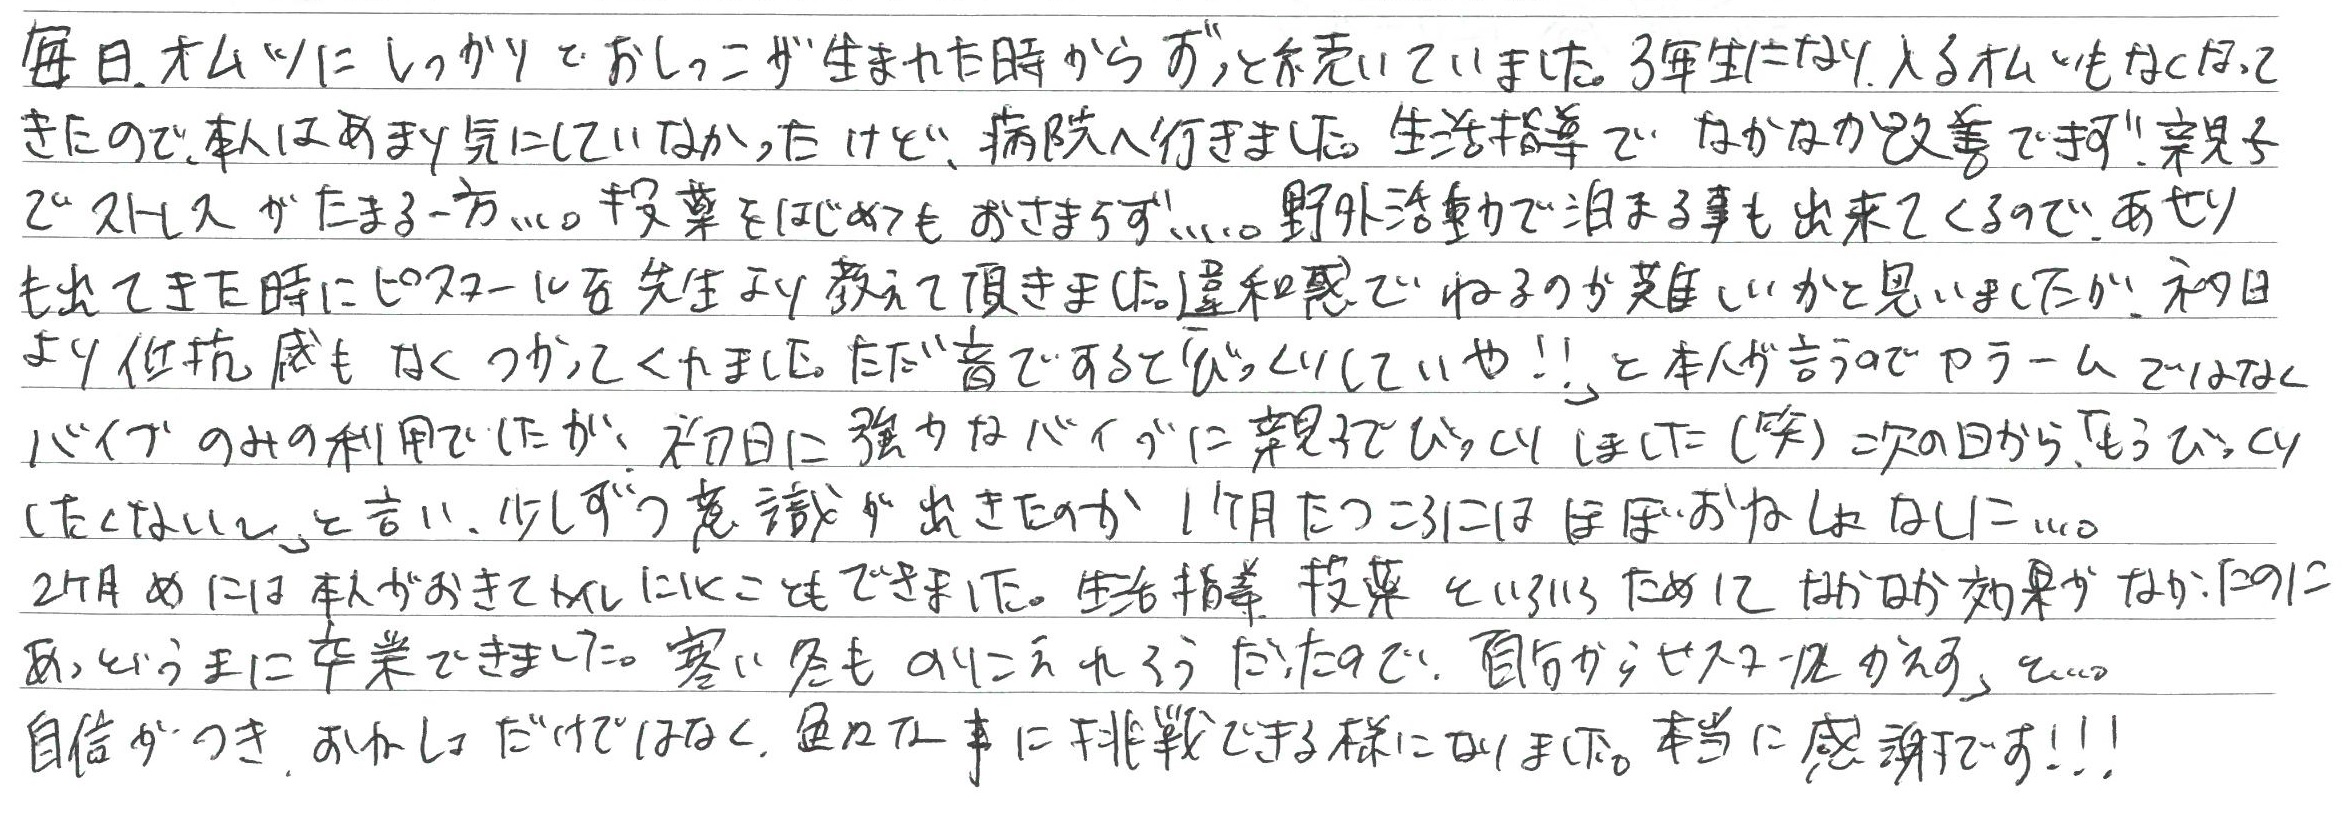 毎日、オムツにしっかりとおしっこが生まれた時からずっと続いていました。3年生になり、入るオムツもなくなって
きたので、本人はあまり気にしていなかったけど、病院へ行きました。生活指導で なかなか改善できず!親子
でストレスがたまる一方…。投薬をはじめてもおさまらず……。野外活動で泊まる事も出来てくるので、あせり
も出てきた時にピスコールを先生より教えて頂きました。違和感でねるのが難しいかと思いましたが、初日
より低抗感もなくつかってくれました。ただ音ですると「びっくりしていや!!」と本人が言うのでアラームではなく
バイブのみの利用でしたが、初日に強力なバイブに親子でびっくりしました(笑)次の日から、「もうびっくり
したくない〜」と言い、少しずつ意識が出きたのか1ケ月たつころにはほぼおねしょなしに…。
2ケ月めには本人がおきてトイレに行くこともできました。生活指導、投薬といろいろためしてなかなか効果がなかったのに
あっというまに卒業できました。寒い冬ものりこえれそうだったので、「自分からピスコールをかえす」と…。
自信がつき、おねしょだけではなく、色々な事に挑戦できる様になりました。本当に感謝です!!!